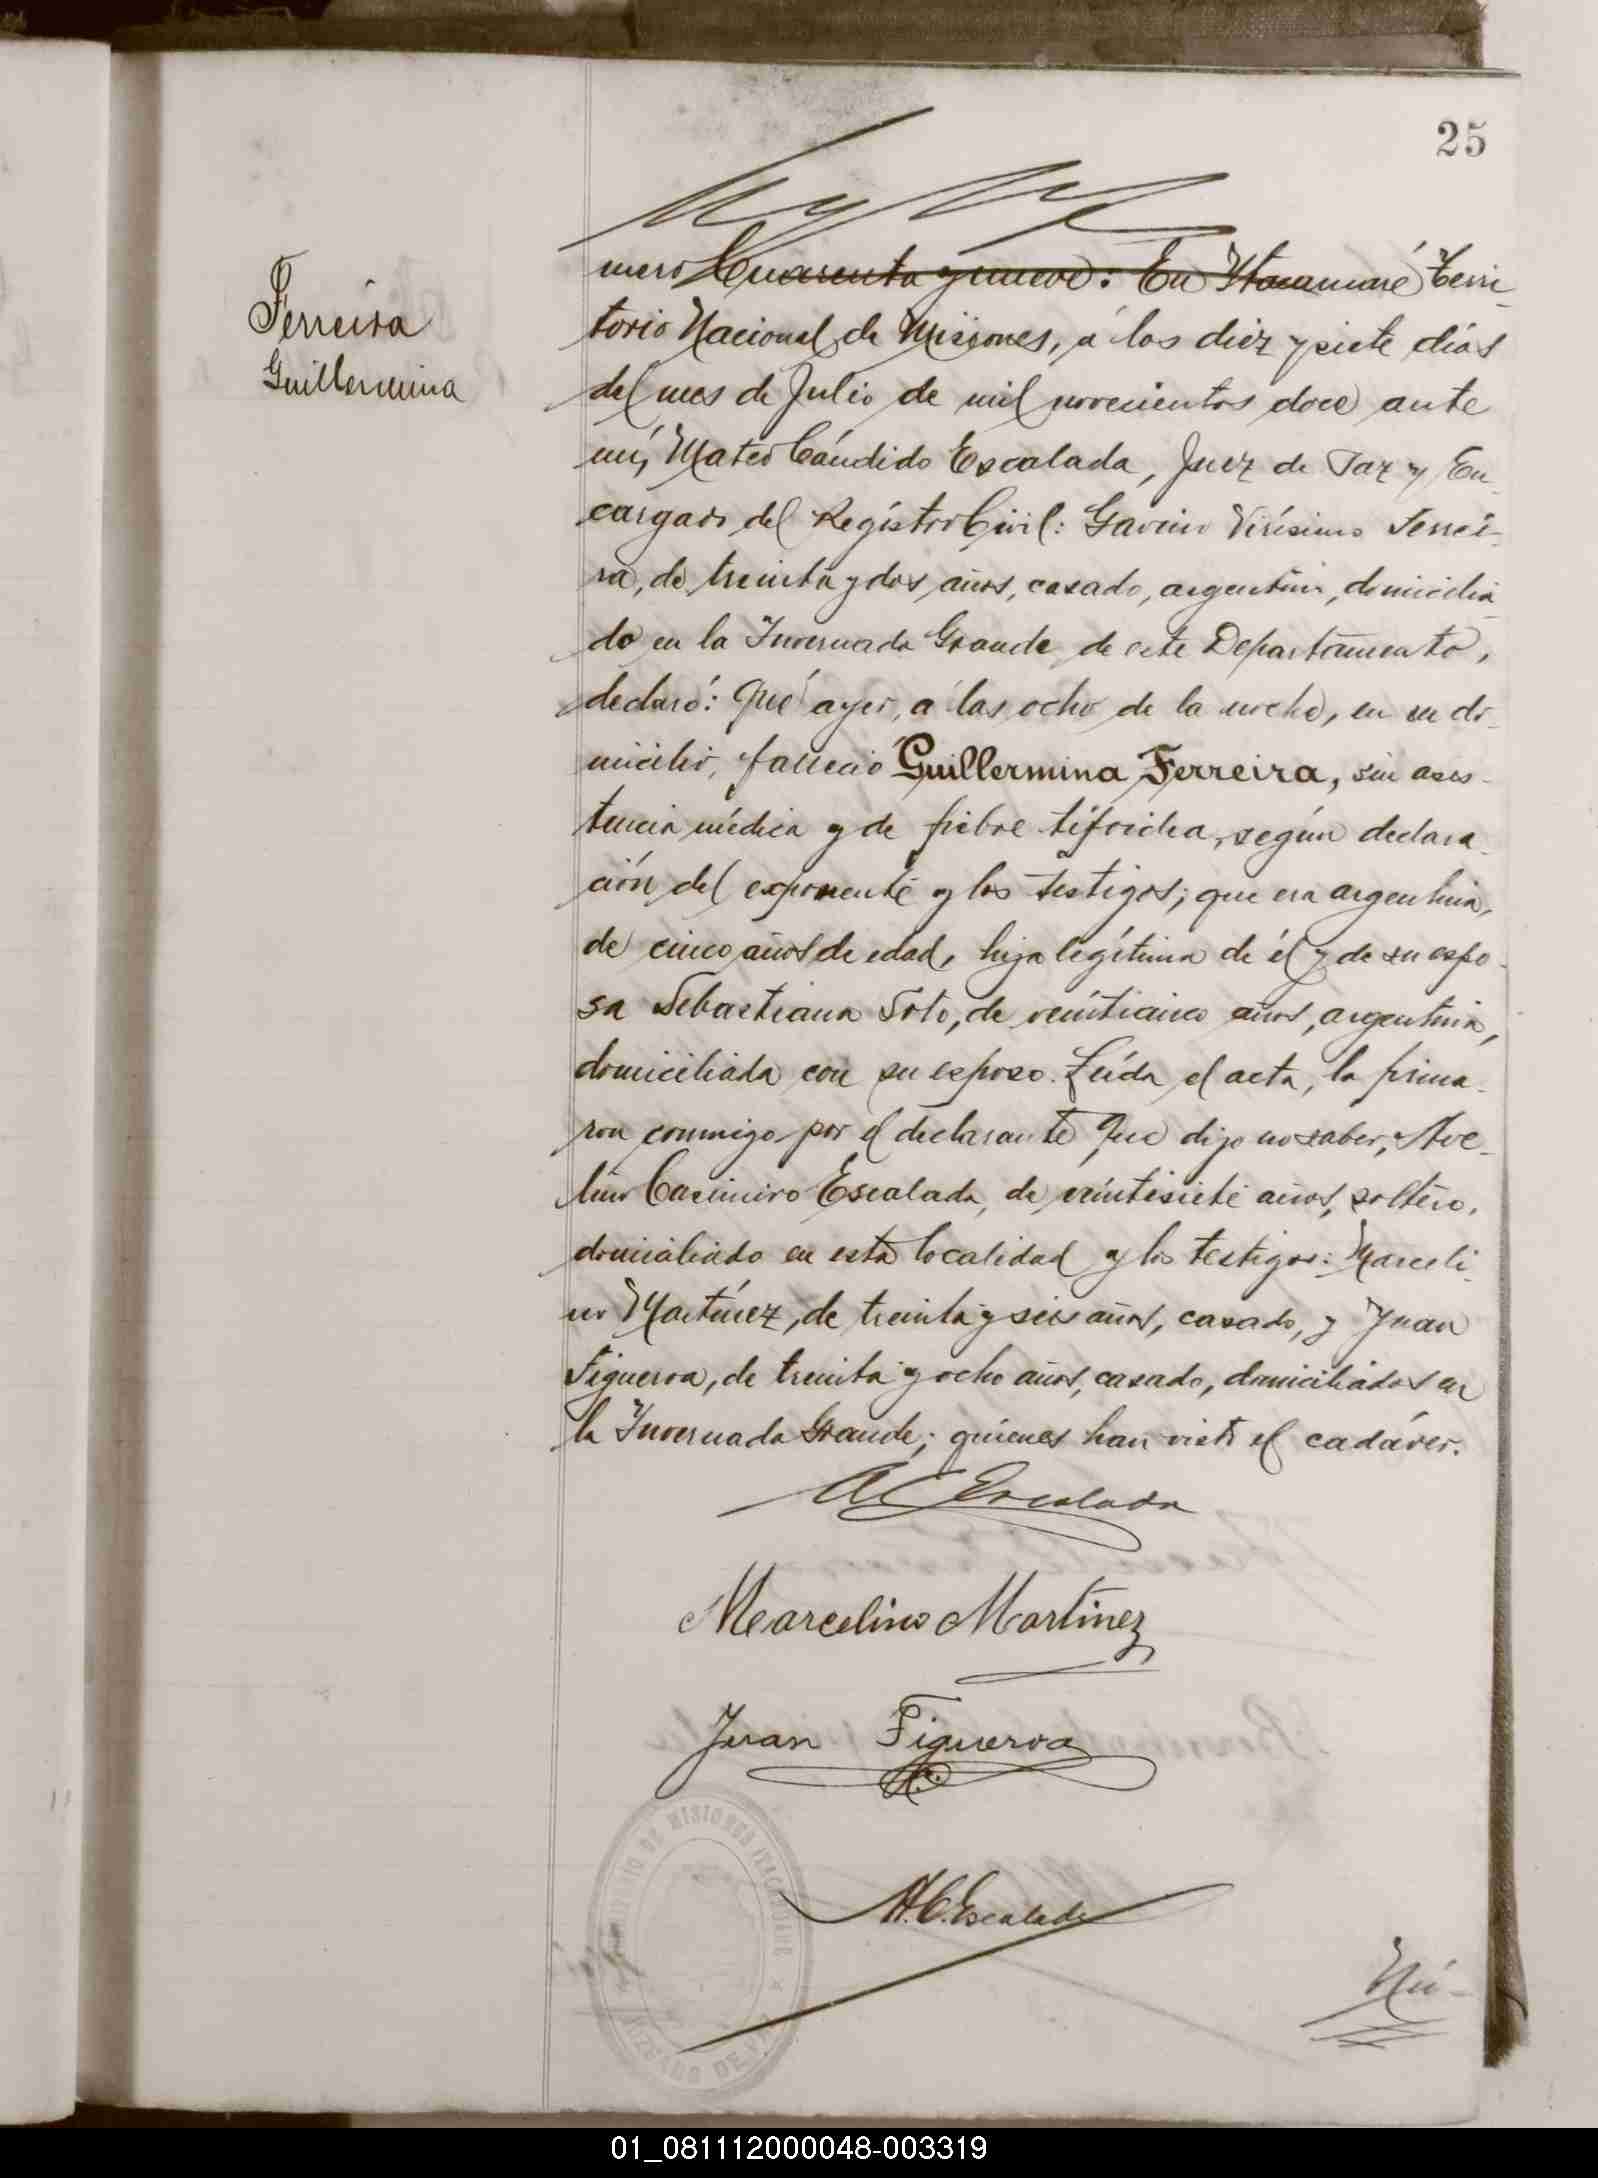 25
Ferreira
Guillermina
mero Cuarenta y nueve: En Itacaruaré Terri-
torio Nacional de Misiones, á los diez y siete días
del mes de Julio de mil novecientos doce ante
mí, Mateo Cándido Escalada, Juez de Paz y En-
cargado del Registro Civil: Gavino Virísimo Ferrei-
ra, de treinta y dos años, casado, argentino, domicilia-
do en la Invernada Grande de este Departamento,
declaró: Qué ayer, á las ocho de la noche, en su do-
micilio, falleció Guillermina Ferreira, sin asis-
tencia médica y de fiebre tifoidea, según declara-
ción del exponente y los testigos; que era argentina,
de cinco años de edad, hija legítima de él y de su espo-
sa Sebastiana Soto, de veinticinco años, argentina,
domiciliada con su esposo. Leída el acta, la firma-
ron conmigo por el declarante que dijo no saber, Ave-
lino Casimiro Escalada, de veintisiete años, soltero,
domiciliado en esta localidad y los testigos: Marceli-
no Martínez, de treinta y seis años, casado, y Juan
Figueroa, de treinta y ocho años, casado, domiciliados en
la Invernada Grande; quienes han visto el cadáver.
A C Escalada
Marcelino Martinez
Juan Figueroa
M.C. Escalada
DE MISIONES
JUZGADO DE
Nú-
01_081112000048-003319